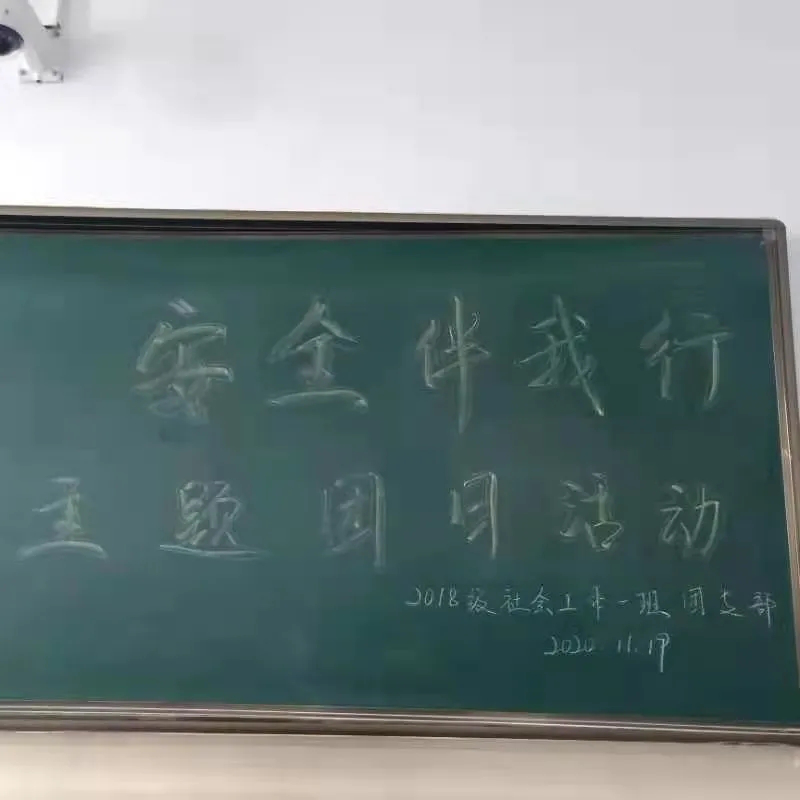 安全伴我行
主题团日活动
2018级社会工作一班团支部
2020.11.17